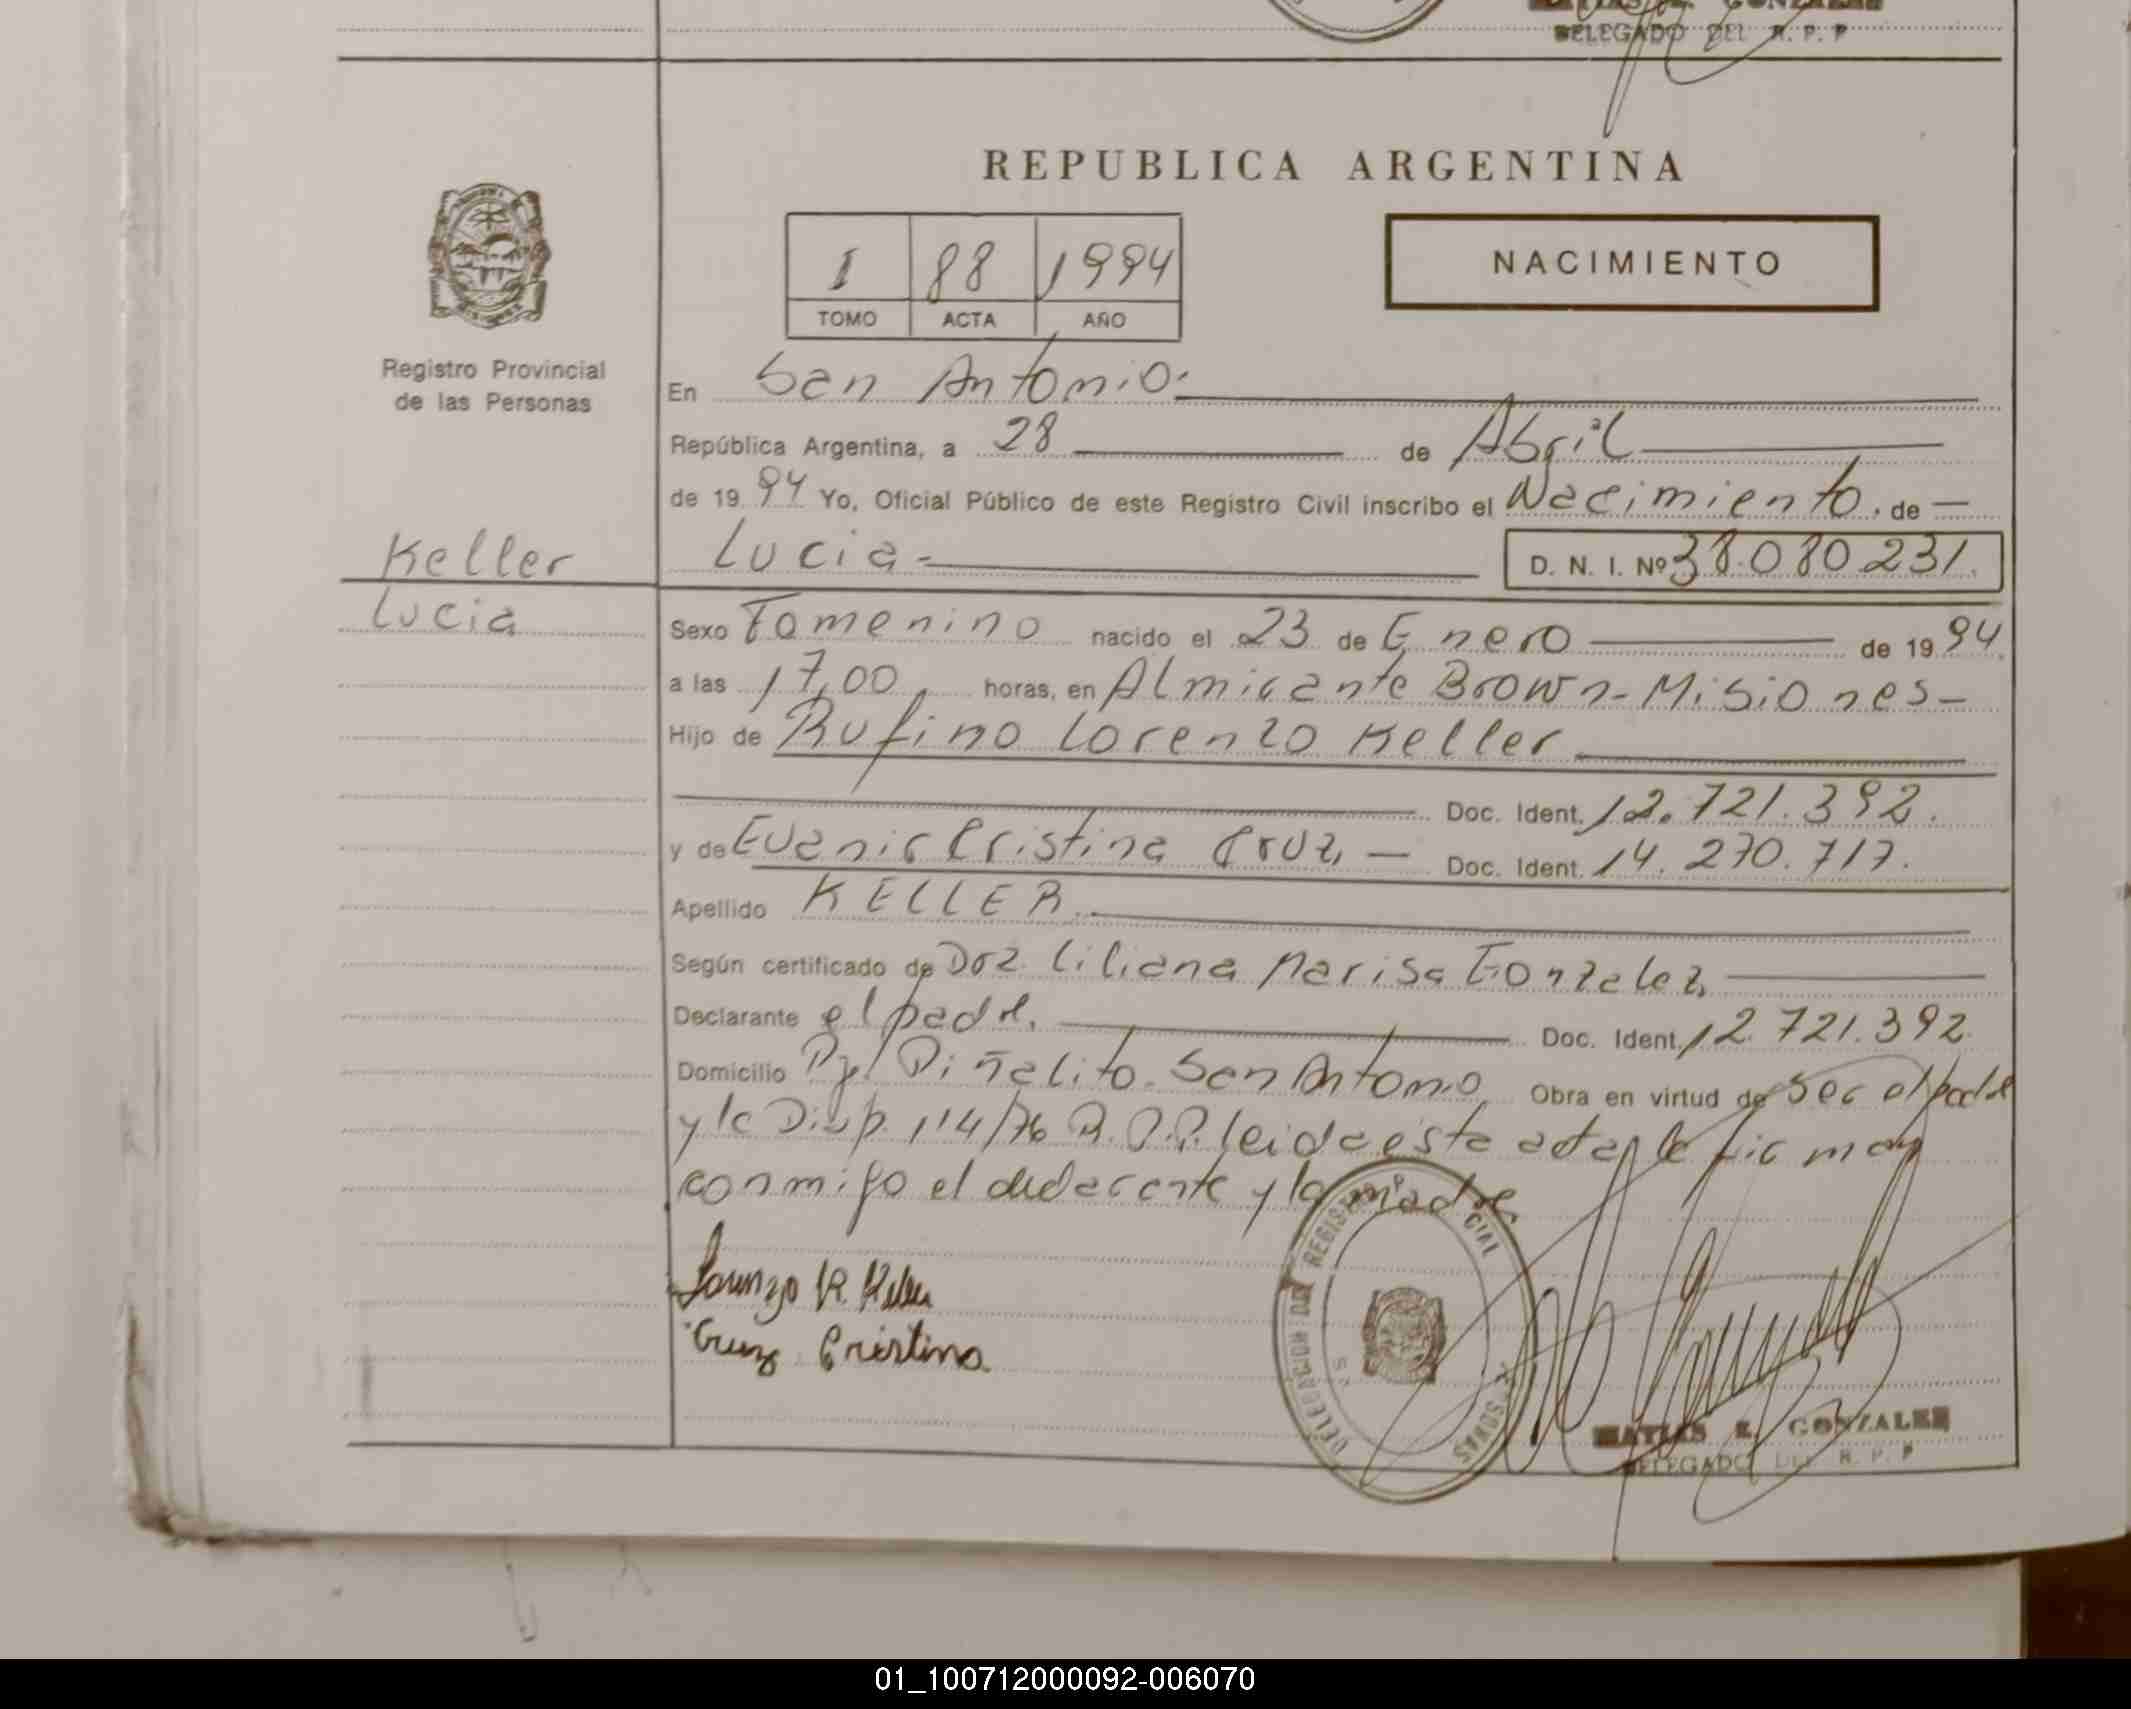 DELEGADO DEL R. P. P
REPUBLICA ARGENTINA
I 88 1994
TOMO ACTA AÑO
NACIMIENTO
Registro Provincial
de las Personas
En San Antonio.
República Argentina, a 28 de Abril
de 19 94 Yo, Oficial Público de este Registro Civil inscribo el Nacimiento. de —
Keller
Lucia
Lucia - D. N. I. Nº 38.080.231.
Sexo Femenino nacido el 23 de Enero de 19 94.
a las 17,00 horas, en Almirante Brown - Misiones -
Hijo de Rufino Lorenzo Keller
Doc. Ident. 12.721.392.
y de Cristina Cruz, — Doc. Ident. 14.270.717.
Apellido KELLER.
Según certificado de Dra. Liliana Marisa Gonzalez
Declarante el padre. Doc. Ident. 12.721.392.
Domicilio Pje. Piñalito. San Antonio. Obra en virtud de ser el padre
y la Disp. 114/76 R.P.P. leida esta acta, la firman
conmigo el declarante y la madre
Lorenzo R. Keller
Cruz Cristina
DELEGACION REGISTRO CIAL
MATIAS E. GONZALEZ
DELEGADO DEL R. P. P
01_100712000092-006070